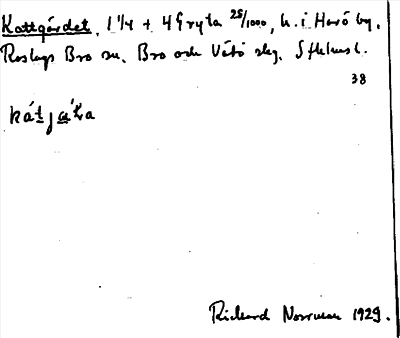 Kattgärdet, 1 1/4 + 4 gryta 25/1000, h. i Harö by.
Roslags Bro sn. Bro och Vätö slg. Sthlms l.
38
Richard Norrman 1929.